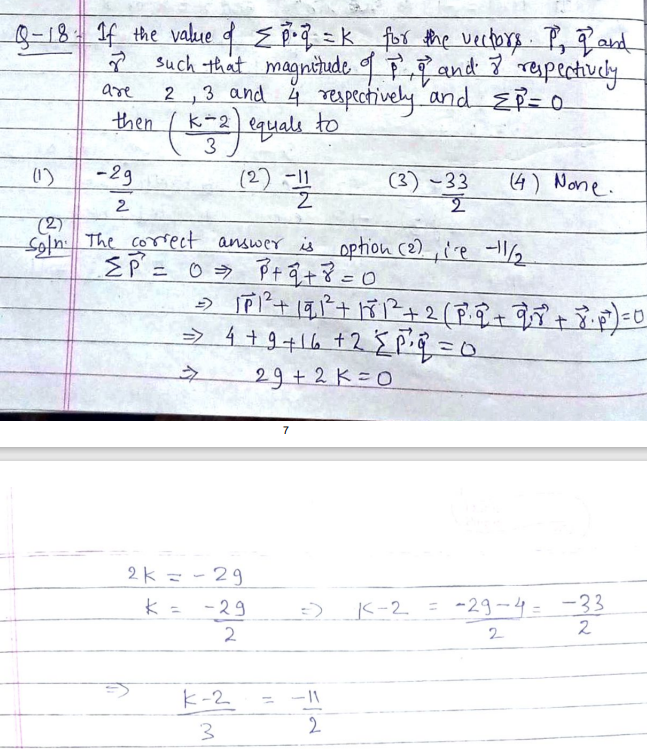 Q-18:- If the value of Σ p⃗·q⃗ = k for the vectors p⃗, q⃗ and
r⃗ such that magnitude of p⃗, q⃗ and r⃗ respectively
are 2, 3 and 4 respectively and Σp⃗ = 0
then ((k-2)/3) equals to
(1) -29/2 (2) -11/2 (3) -33/2 (4) None.
(2)
Soln: The correct answer is option (2), i.e -11/2
Σp⃗ = 0 ⇒ p⃗ + q⃗ + r⃗ = 0
⇒ |p⃗|² + |q⃗|² + |r⃗|² + 2(p⃗.q⃗ + q⃗.r⃗ + r⃗.p⃗) = 0
⇒ 4 + 9 + 16 + 2 Σp⃗.q⃗ = 0
⇒ 29 + 2k = 0
7
2k = -29
k = -29/2 ⇒ k-2 = (-29-4)/2 = -33/2
⇒ (k-2)/3 = -11/2